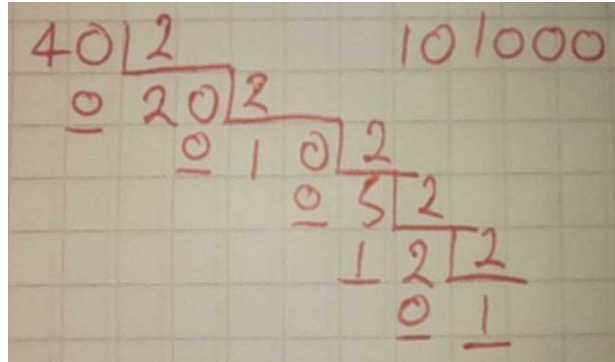 40 2 101000
0 20 2
0 10 2
0 5 2
1 2 2
0 1